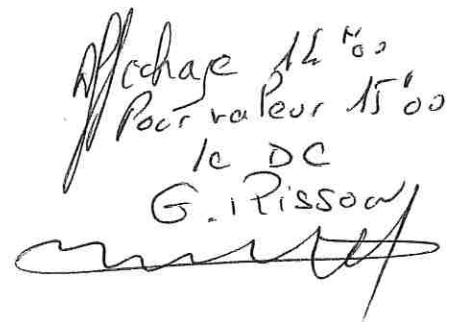 Affichage 14H00
Pour valeur 15'00
le DC
G. RISSON